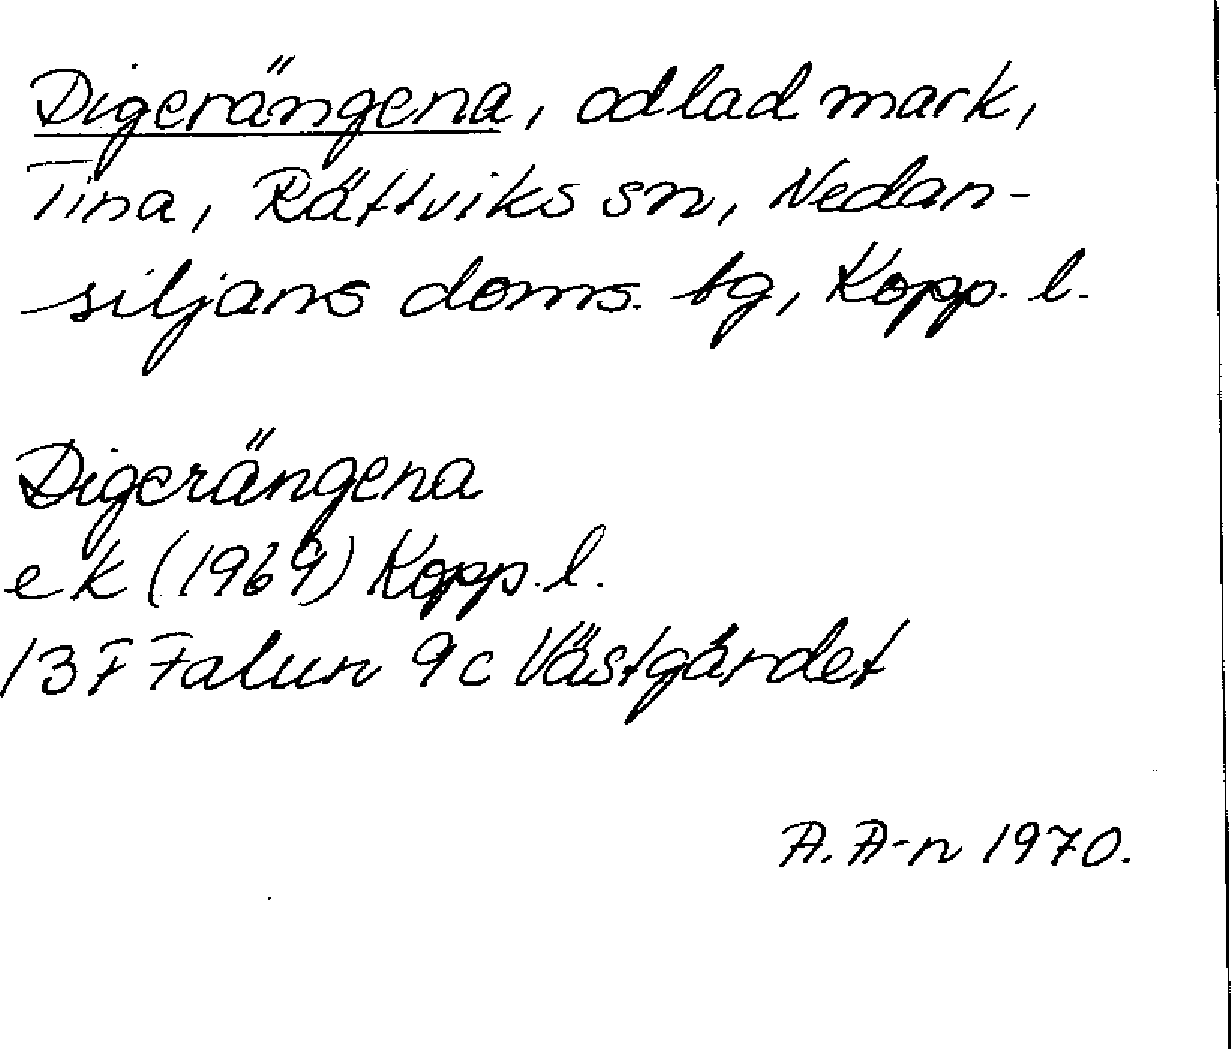 Digerängena, odlad mark,
Tina, Rättviks sn, Nedan-
siljans doms. tg, Kopp. l.
Digerängena
ek (1969) Kopp. l.
13F Falun 9c Västgärdet
A. A-n 1970.